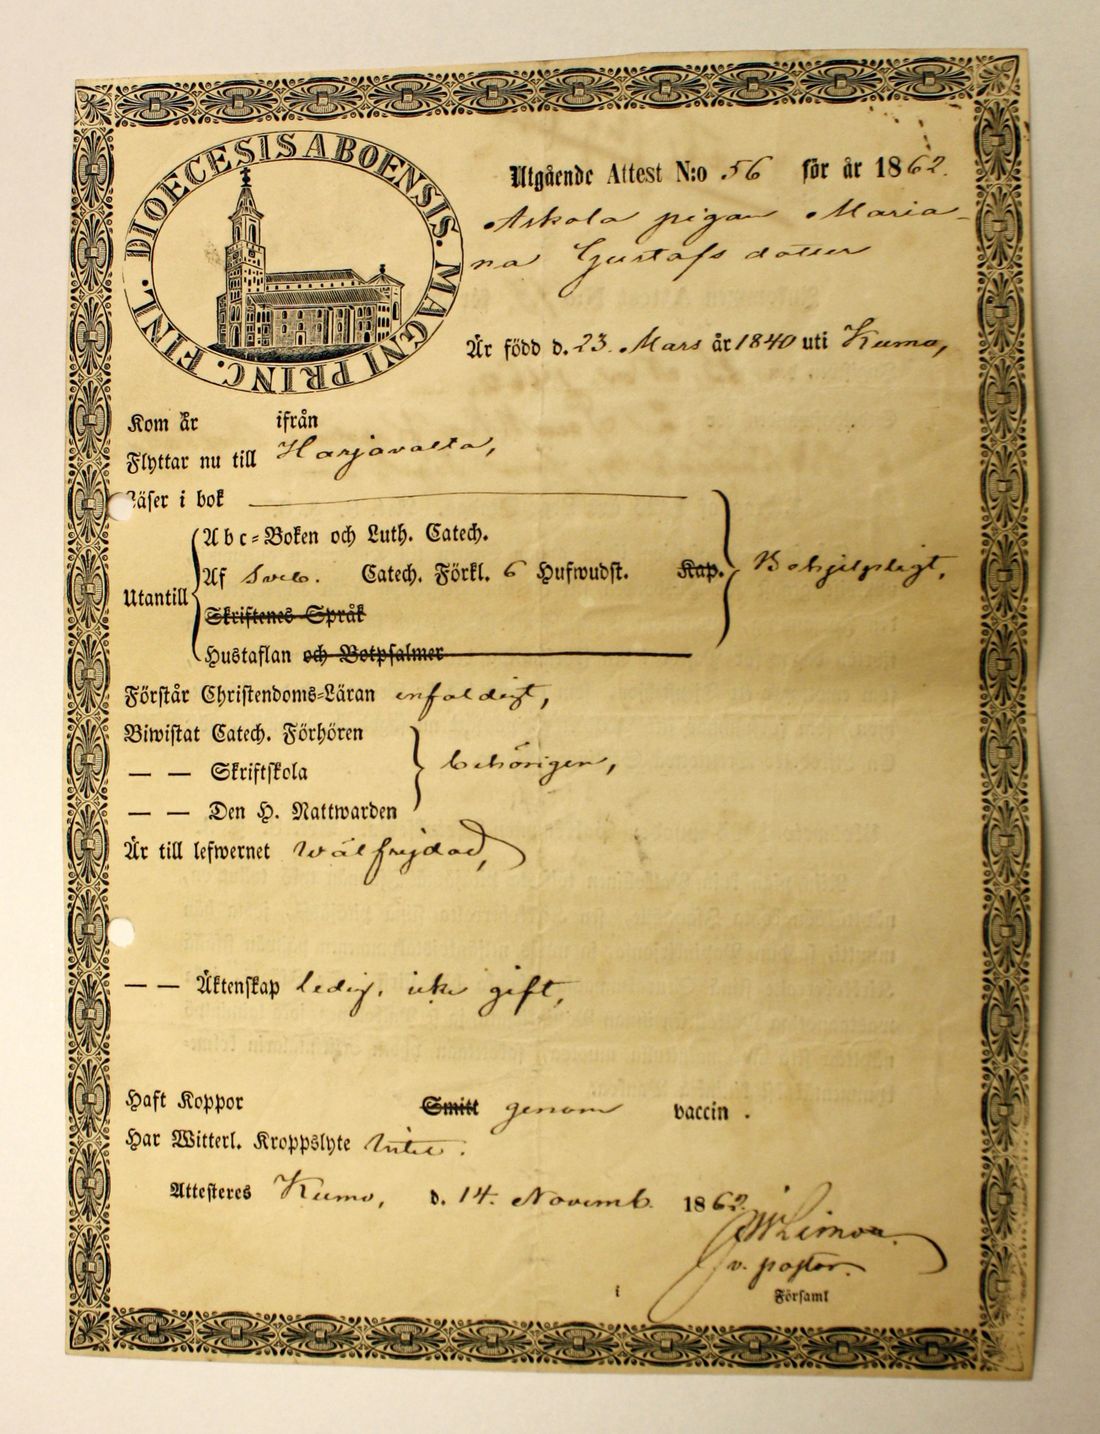 DIOECESIS ABOENSIS. MAGNI PRINC. FINL.
Utgående Attest N:o 56 för år 1862.
Askola pigan Maria-
na Gustafs dotter
Är född d. 23. Mars år 1840 uti Kumo,
Kom år ifrån
Flyttar nu till Harjavalta,
Läser i bok
Abc-Boken och Luth. Catech.
Af Sveb. Catech. Förkl. 6 Hufwudst. Kap. Behjelpligt,
Utantill
Skriftenes Språk
Hustaflan och Botpsalmer
Förstår Christendoms-Läran enfaldigt,
Biwistat Catech. Förhören
— — Skriftskola behörigen,
— — Den H. Nattwarden
Är till lefwernet wälfrejdad,
— — Äktenskap ledig, icke gift,
Haft Koppor Smitt genom vaccin .
Har Witterl. Kroppslyte Intet .
Attesteres Kumo, d. 14. Novemb. 1862.
v. pastor.
i Församl